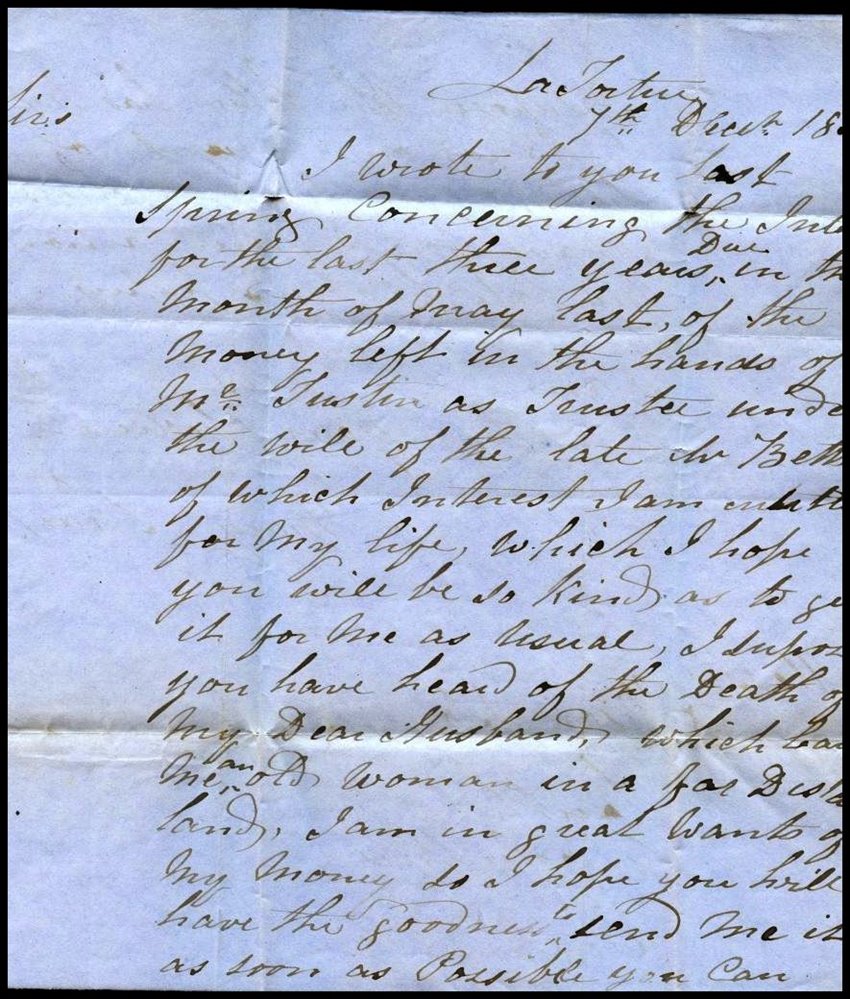 La Tortue
7th Decr. 18
Sirs
I wrote to you last
spring Concerning the Inte
for the last three years, Due in th
Month of May last, of the
Money left in the hands of
Mr. Tustin as Trustee unde
the will of the late Mr Bett
of which Interest I am
for My life, which I hope
you will be so Kind as to ge
it for Me as usual, I supos
you have heard of the Death of
My Dear Husband, which
Me an old woman in a far Dista
land, I am in great Want of
My Money so I hope you will
have the goodness to send Me it
as soon as Possible you Can